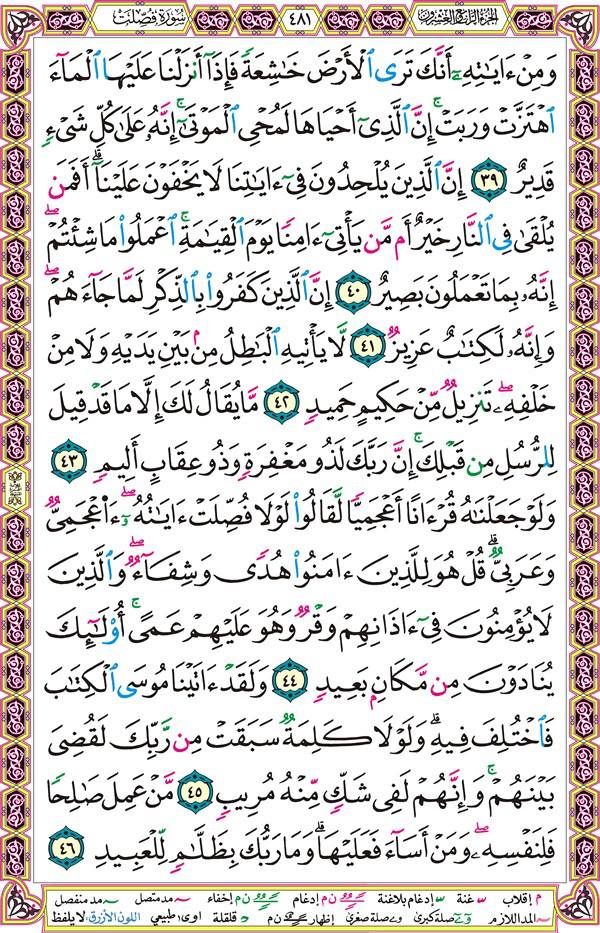 سُورَةُ فُصِّلَتْ ٤٨١ الجزء الرابع والعشرون
وَمِنْ ءَايَـٰتِهِۦٓ أَنَّكَ تَرَى ٱلْأَرْضَ خَـٰشِعَةً فَإِذَآ أَنزَلْنَا عَلَيْهَا ٱلْمَآءَ
ٱهْتَزَّتْ وَرَبَتْ ۚ إِنَّ ٱلَّذِىٓ أَحْيَاهَا لَمُحْىِ ٱلْمَوْتَىٰٓ ۚ إِنَّهُۥ عَلَىٰ كُلِّ شَىْءٍ
قَدِيرٌ ٣٩ إِنَّ ٱلَّذِينَ يُلْحِدُونَ فِىٓ ءَايَـٰتِنَا لَا يَخْفَوْنَ عَلَيْنَآ ۗ أَفَمَن
يُلْقَىٰ فِى ٱلنَّارِ خَيْرٌ أَم مَّن يَأْتِىٓ ءَامِنًا يَوْمَ ٱلْقِيَـٰمَةِ ۚ ٱعْمَلُوا۟ مَا شِئْتُمْ ۖ
إِنَّهُۥ بِمَا تَعْمَلُونَ بَصِيرٌ ٤٠ إِنَّ ٱلَّذِينَ كَفَرُوا۟ بِٱلذِّكْرِ لَمَّا جَآءَهُمْ ۖ
وَإِنَّهُۥ لَكِتَـٰبٌ عَزِيزٌ ٤١ لَّا يَأْتِيهِ ٱلْبَـٰطِلُ مِنۢ بَيْنِ يَدَيْهِ وَلَا مِنْ
خَلْفِهِۦ ۖ تَنزِيلٌ مِّنْ حَكِيمٍ حَمِيدٍ ٤٢ مَّا يُقَالُ لَكَ إِلَّا مَا قَدْ قِيلَ
لِلرُّسُلِ مِن قَبْلِكَ ۚ إِنَّ رَبَّكَ لَذُو مَغْفِرَةٍ وَذُو عِقَابٍ أَلِيمٍ ٤٣
وَلَوْ جَعَلْنَـٰهُ قُرْءَانًا أَعْجَمِيًّا لَّقَالُوا۟ لَوْلَا فُصِّلَتْ ءَايَـٰتُهُۥٓ ۖ ءَا۬عْجَمِىٌّ
وَعَرَبِىٌّ ۗ قُلْ هُوَ لِلَّذِينَ ءَامَنُوا۟ هُدًى وَشِفَآءٌ ۖ وَٱلَّذِينَ
لَا يُؤْمِنُونَ فِىٓ ءَاذَانِهِمْ وَقْرٌ وَهُوَ عَلَيْهِمْ عَمًى ۚ أُو۟لَـٰٓئِكَ
يُنَادَوْنَ مِن مَّكَانٍۭ بَعِيدٍ ٤٤ وَلَقَدْ ءَاتَيْنَا مُوسَى ٱلْكِتَـٰبَ
فَٱخْتُلِفَ فِيهِ ۗ وَلَوْلَا كَلِمَةٌ سَبَقَتْ مِن رَّبِّكَ لَقُضِىَ
بَيْنَهُمْ ۚ وَإِنَّهُمْ لَفِى شَكٍّ مِّنْهُ مُرِيبٍ ٤٥ مَّنْ عَمِلَ صَـٰلِحًا
فَلِنَفْسِهِۦ ۖ وَمَنْ أَسَآءَ فَعَلَيْهَا ۗ وَمَا رَبُّكَ بِظَلَّـٰمٍ لِّلْعَبِيدِ ٤٦
م إقلاب غنة إدغام بلاغنة ن م إدغام ن م إخفاء مد متصل مد منفصل
المد اللازم صلة كبرى صلة صغرى إظهار ن م قلقلة اوى؛ طبيعي اللون الأزرق: لا يلفظ